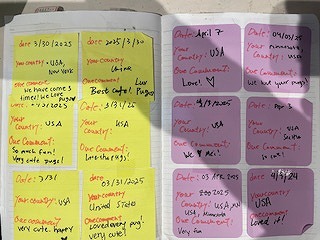 date 3/30/2025
your country • USA,
New York
one comment
we have come 3
times! We love
pugs
date 2025/3/30
your country
Ukraine
One comment Luv
Best cafe! Pugs
Date: April 7
Your
Country: USA
One Comment:
Love! ♡
Date: 04/03/25
Your Minnesota,
Country: USA
One Comment:
We love your pugs!
Your
Country: USA
One Comment:
So much fun!
Very cute pugs!
Date: 3/31/25
Your
Country: USA
One Comment:
Love the pugs!
Date: 4/3/2025
Your
Country: USA
One Comment:
We ♥ Mei!
Date: Apr 3
Your
Country: USA
One Comment:
So cute!
Date: 3/31
Your
Country: USA
One comment
very cute. happy
Date 03/31/2025
Your country
United States
One comment
Loved every pug!
very cute!
Date: 03 APR 2025
Your
Country: USA, MN
USA, Minnesota
One Comment:
Very fun
Date: 4/3/24
Your
Country: USA
One comment:
Loved it!